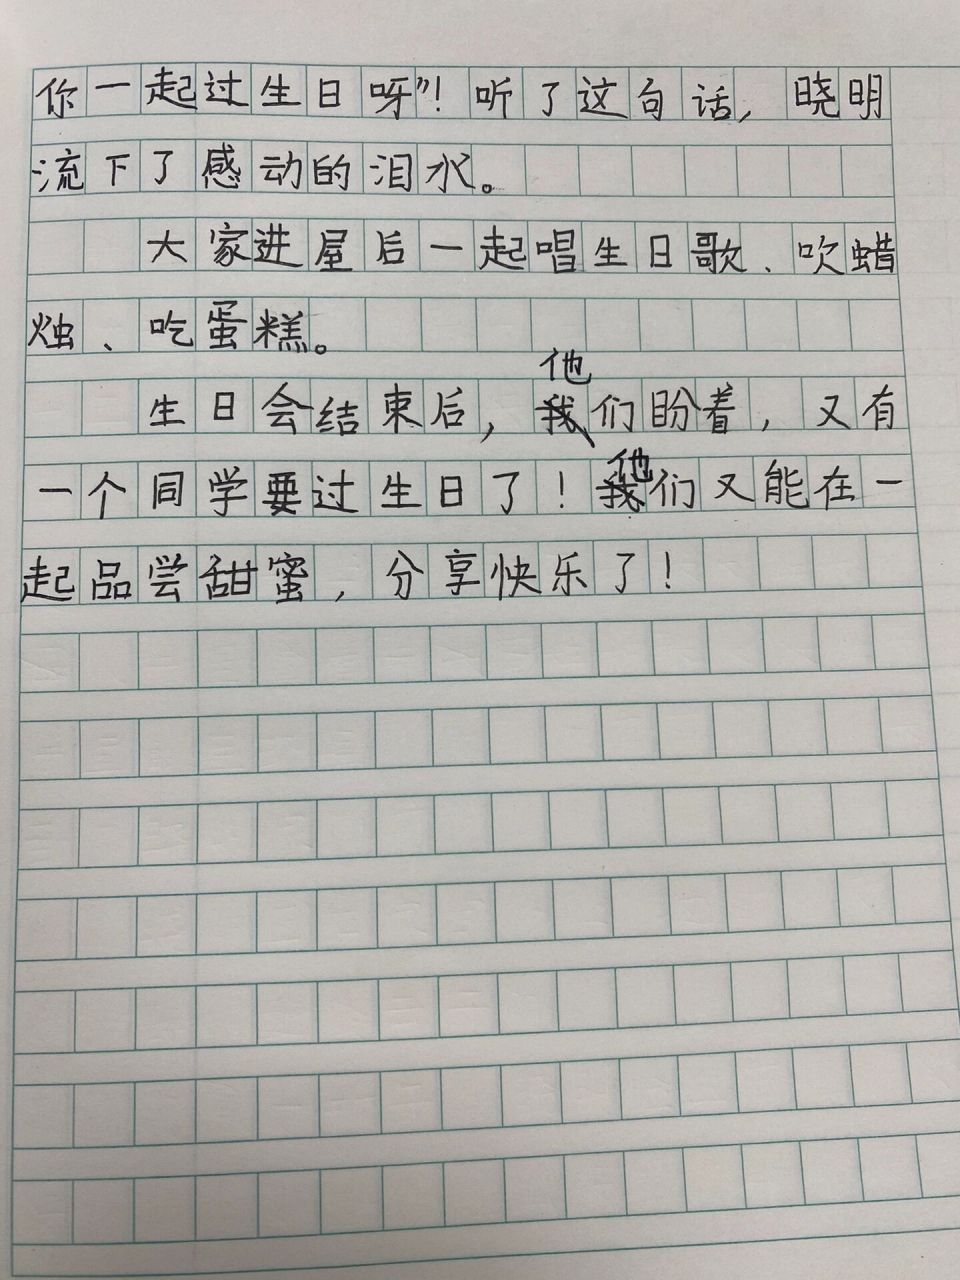 你一起过生日呀”！听了这句话，晓明
流下了感动的泪水。
大家进屋后一起唱生日歌、吹蜡
烛、吃蛋糕。
生日会结束后，他们盼着，又有
一个同学要过生日了！他们又能在一
起品尝甜蜜，分享快乐了！